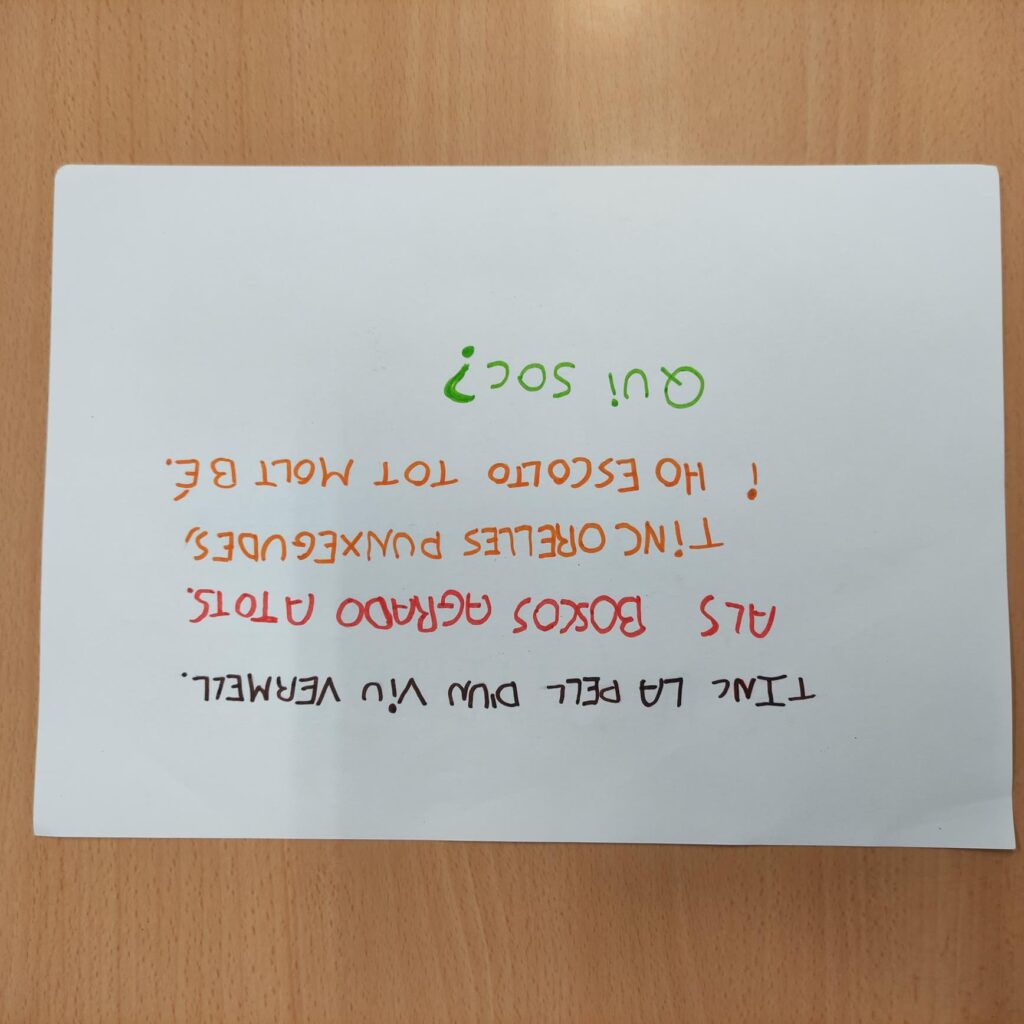 TINC LA PELL D'UN VIU VERMELL.
ALS BOSCOS AGRADO A TOTS.
TINC ORELLES PUNXEGUDES,
I HO ESCOLTO TOT MOLT BÉ.
QUI SOC?